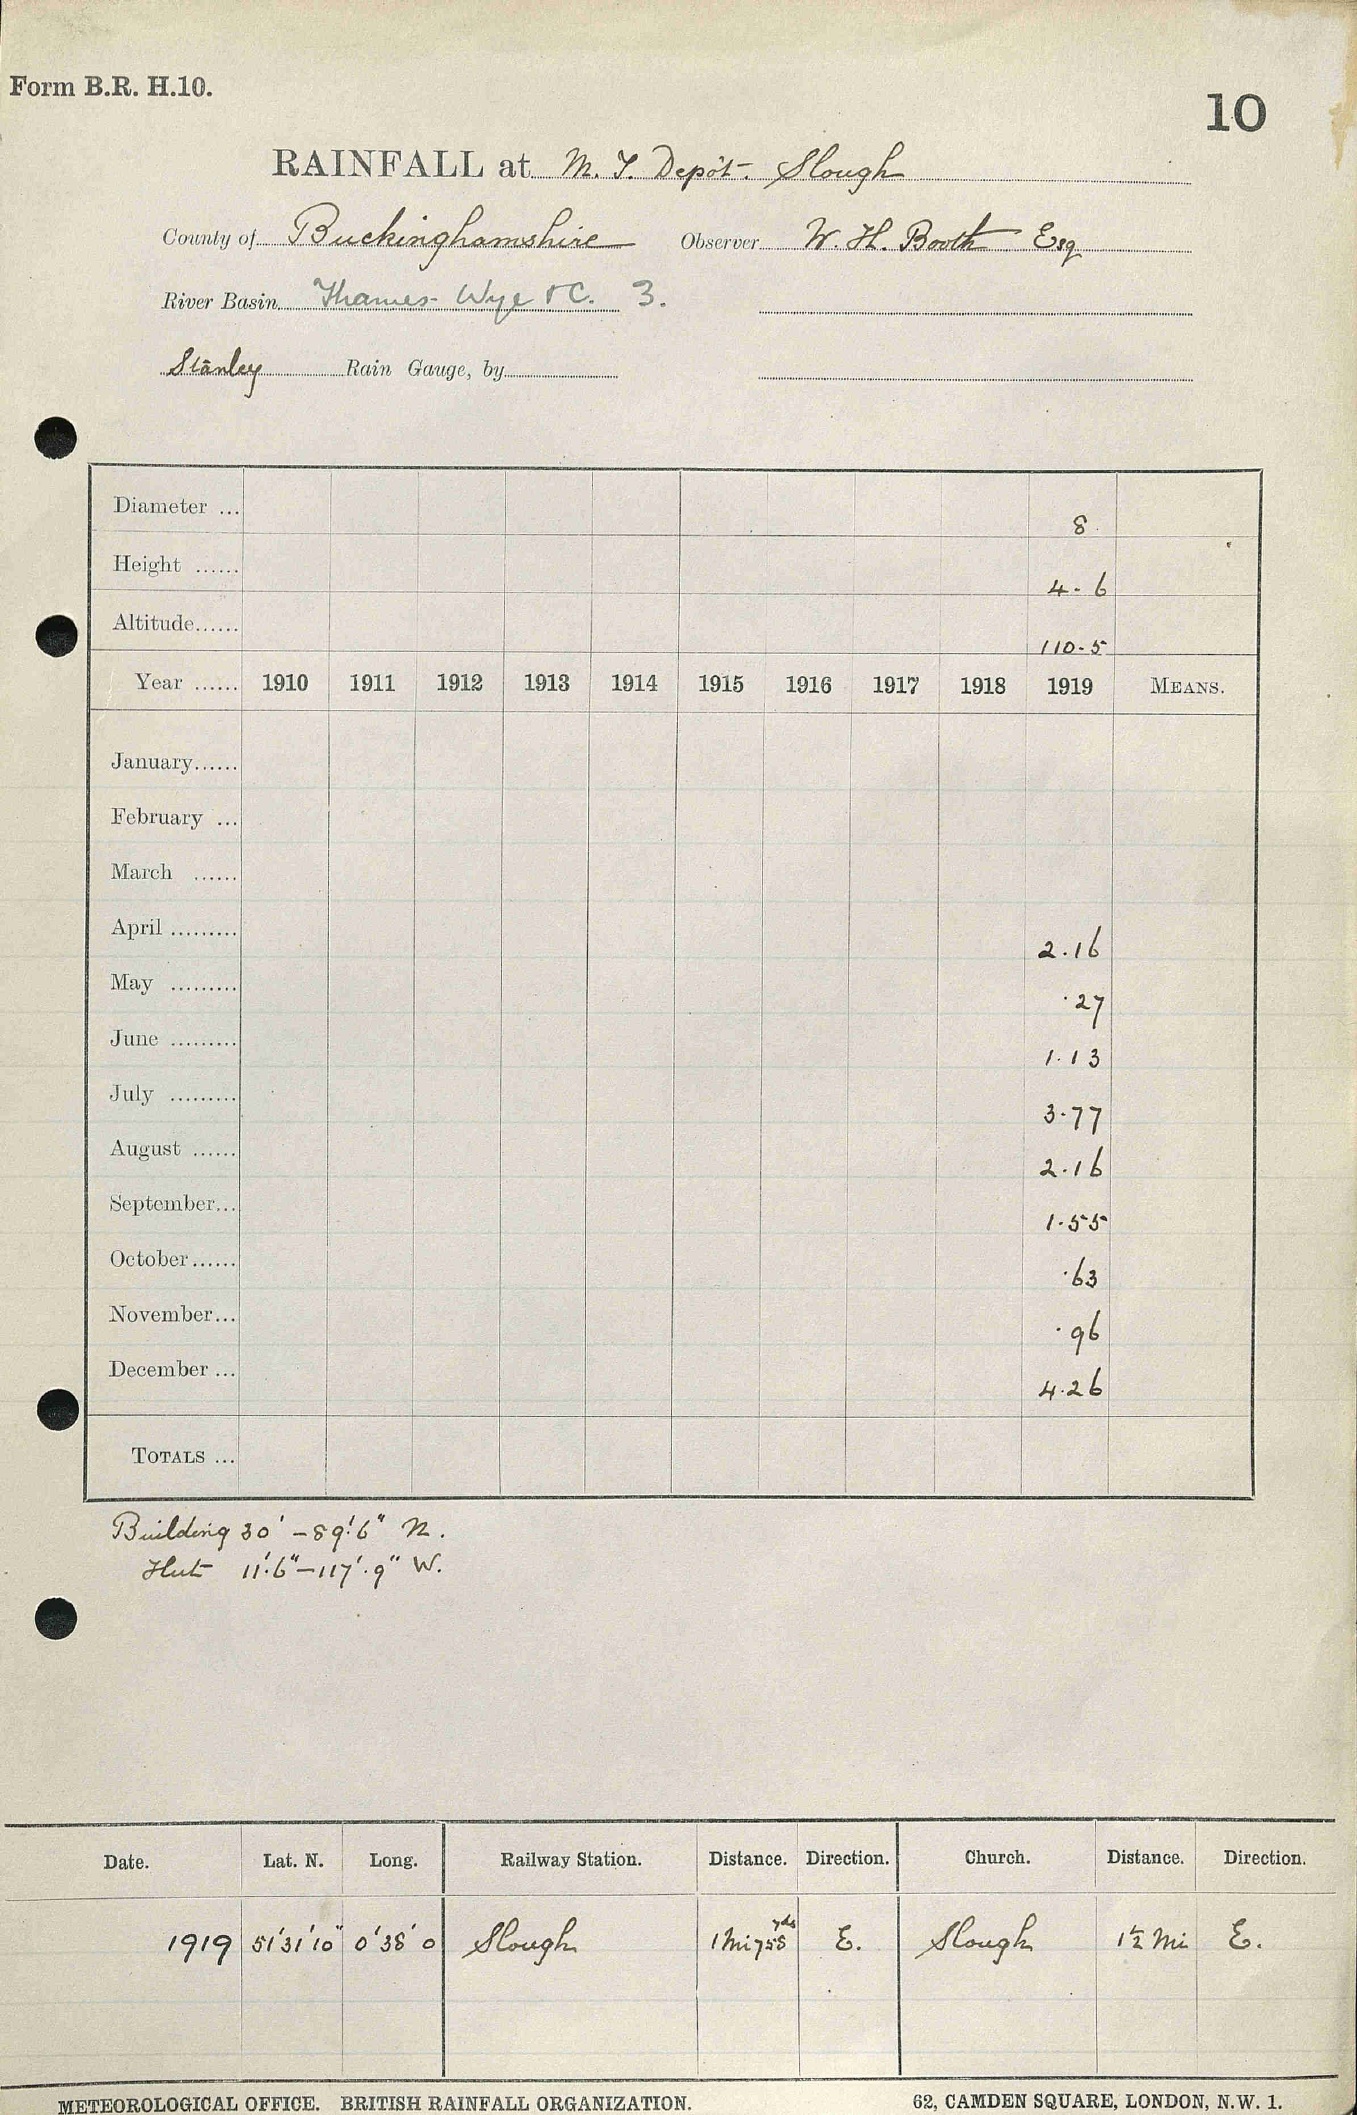 Form B.R. H.10.
10
RAINFALL at M. T. Depôt. Slough
County of Buckinghamshire Observer W. H. Booth Esq
River Basin Thames - Wye &C. 3.
Stanley Rain Gauge, by
Diameter ... 8
Height ...... 4 - 6
Altitude...... 110 - 5
Year ...... 1910 1911 1912 1913 1914 1915 1916 1917 1918 1919 MEANS.
January......
February ...
March ......
April ......... 2.16
May ......... .27
June ......... 1.13
July ......... 3.77
August ...... 2.16
September... 1.55
October...... .63
November... .96
December ... 4.26
TOTALS ...
Building 30' - 89'.6" N.
Hut 11'.6" - 117'.9" W.
Date. Lat. N. Long. Railway Station. Distance. Direction. Church. Distance. Direction.
1919 51' 31' 10" 0' 38' 0 Slough 1 Mi 758 yds E. Slough 1½ Mi E.
METEOROLOGICAL OFFICE. BRITISH RAINFALL ORGANIZATION. 62, CAMDEN SQUARE, LONDON, N.W. 1.